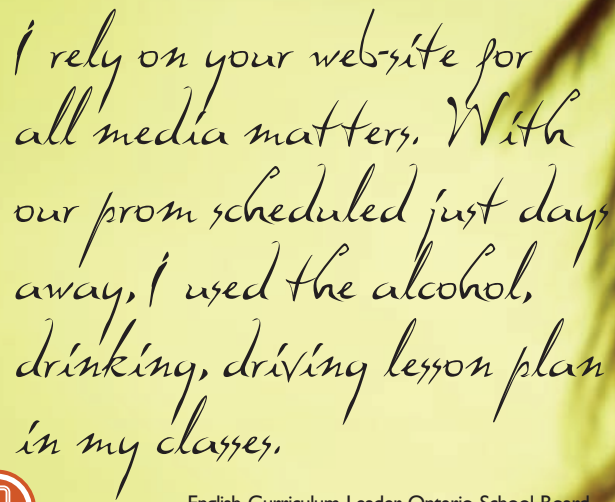 I rely on your web-site for
all media matters. With
our prom scheduled just days
away, I used the alcohol,
drinking, driving lesson plan
in my classes.
English Curriculum Leader, Ontario School Board